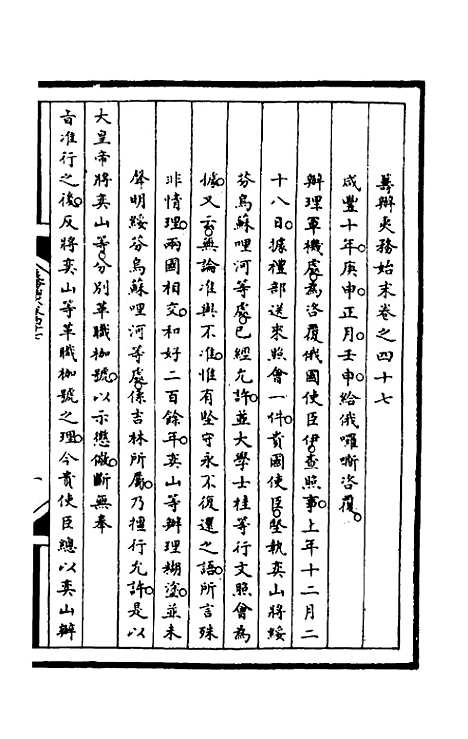 籌辦夷務始末卷之四十七
咸豐十年。庚申正月。壬申給俄囉嘶咨覆。
辦理軍機處。為咨覆俄國使臣伊。查照事。上年十二月二
十八日。據禮部送來照會一件。貴國使臣。堅執奕山將綏
芬烏蘇哩河等處。已經允許。並大學士桂等行文照會為
憑。又云。無論准與不准。惟有堅守永不復還之語。所言殊
非情理。兩國相交。和好二百餘年。奕山等辦理糊塗。並未
聲明綏芬烏蘇哩河等處。係吉林所屬。乃擅行允許。是以
大皇帝將奕山等。分別革職枷號。以示懲儆。斷無奉
旨准行之後。反將奕山等革職枷號之理。今貴使臣總以奕山辦